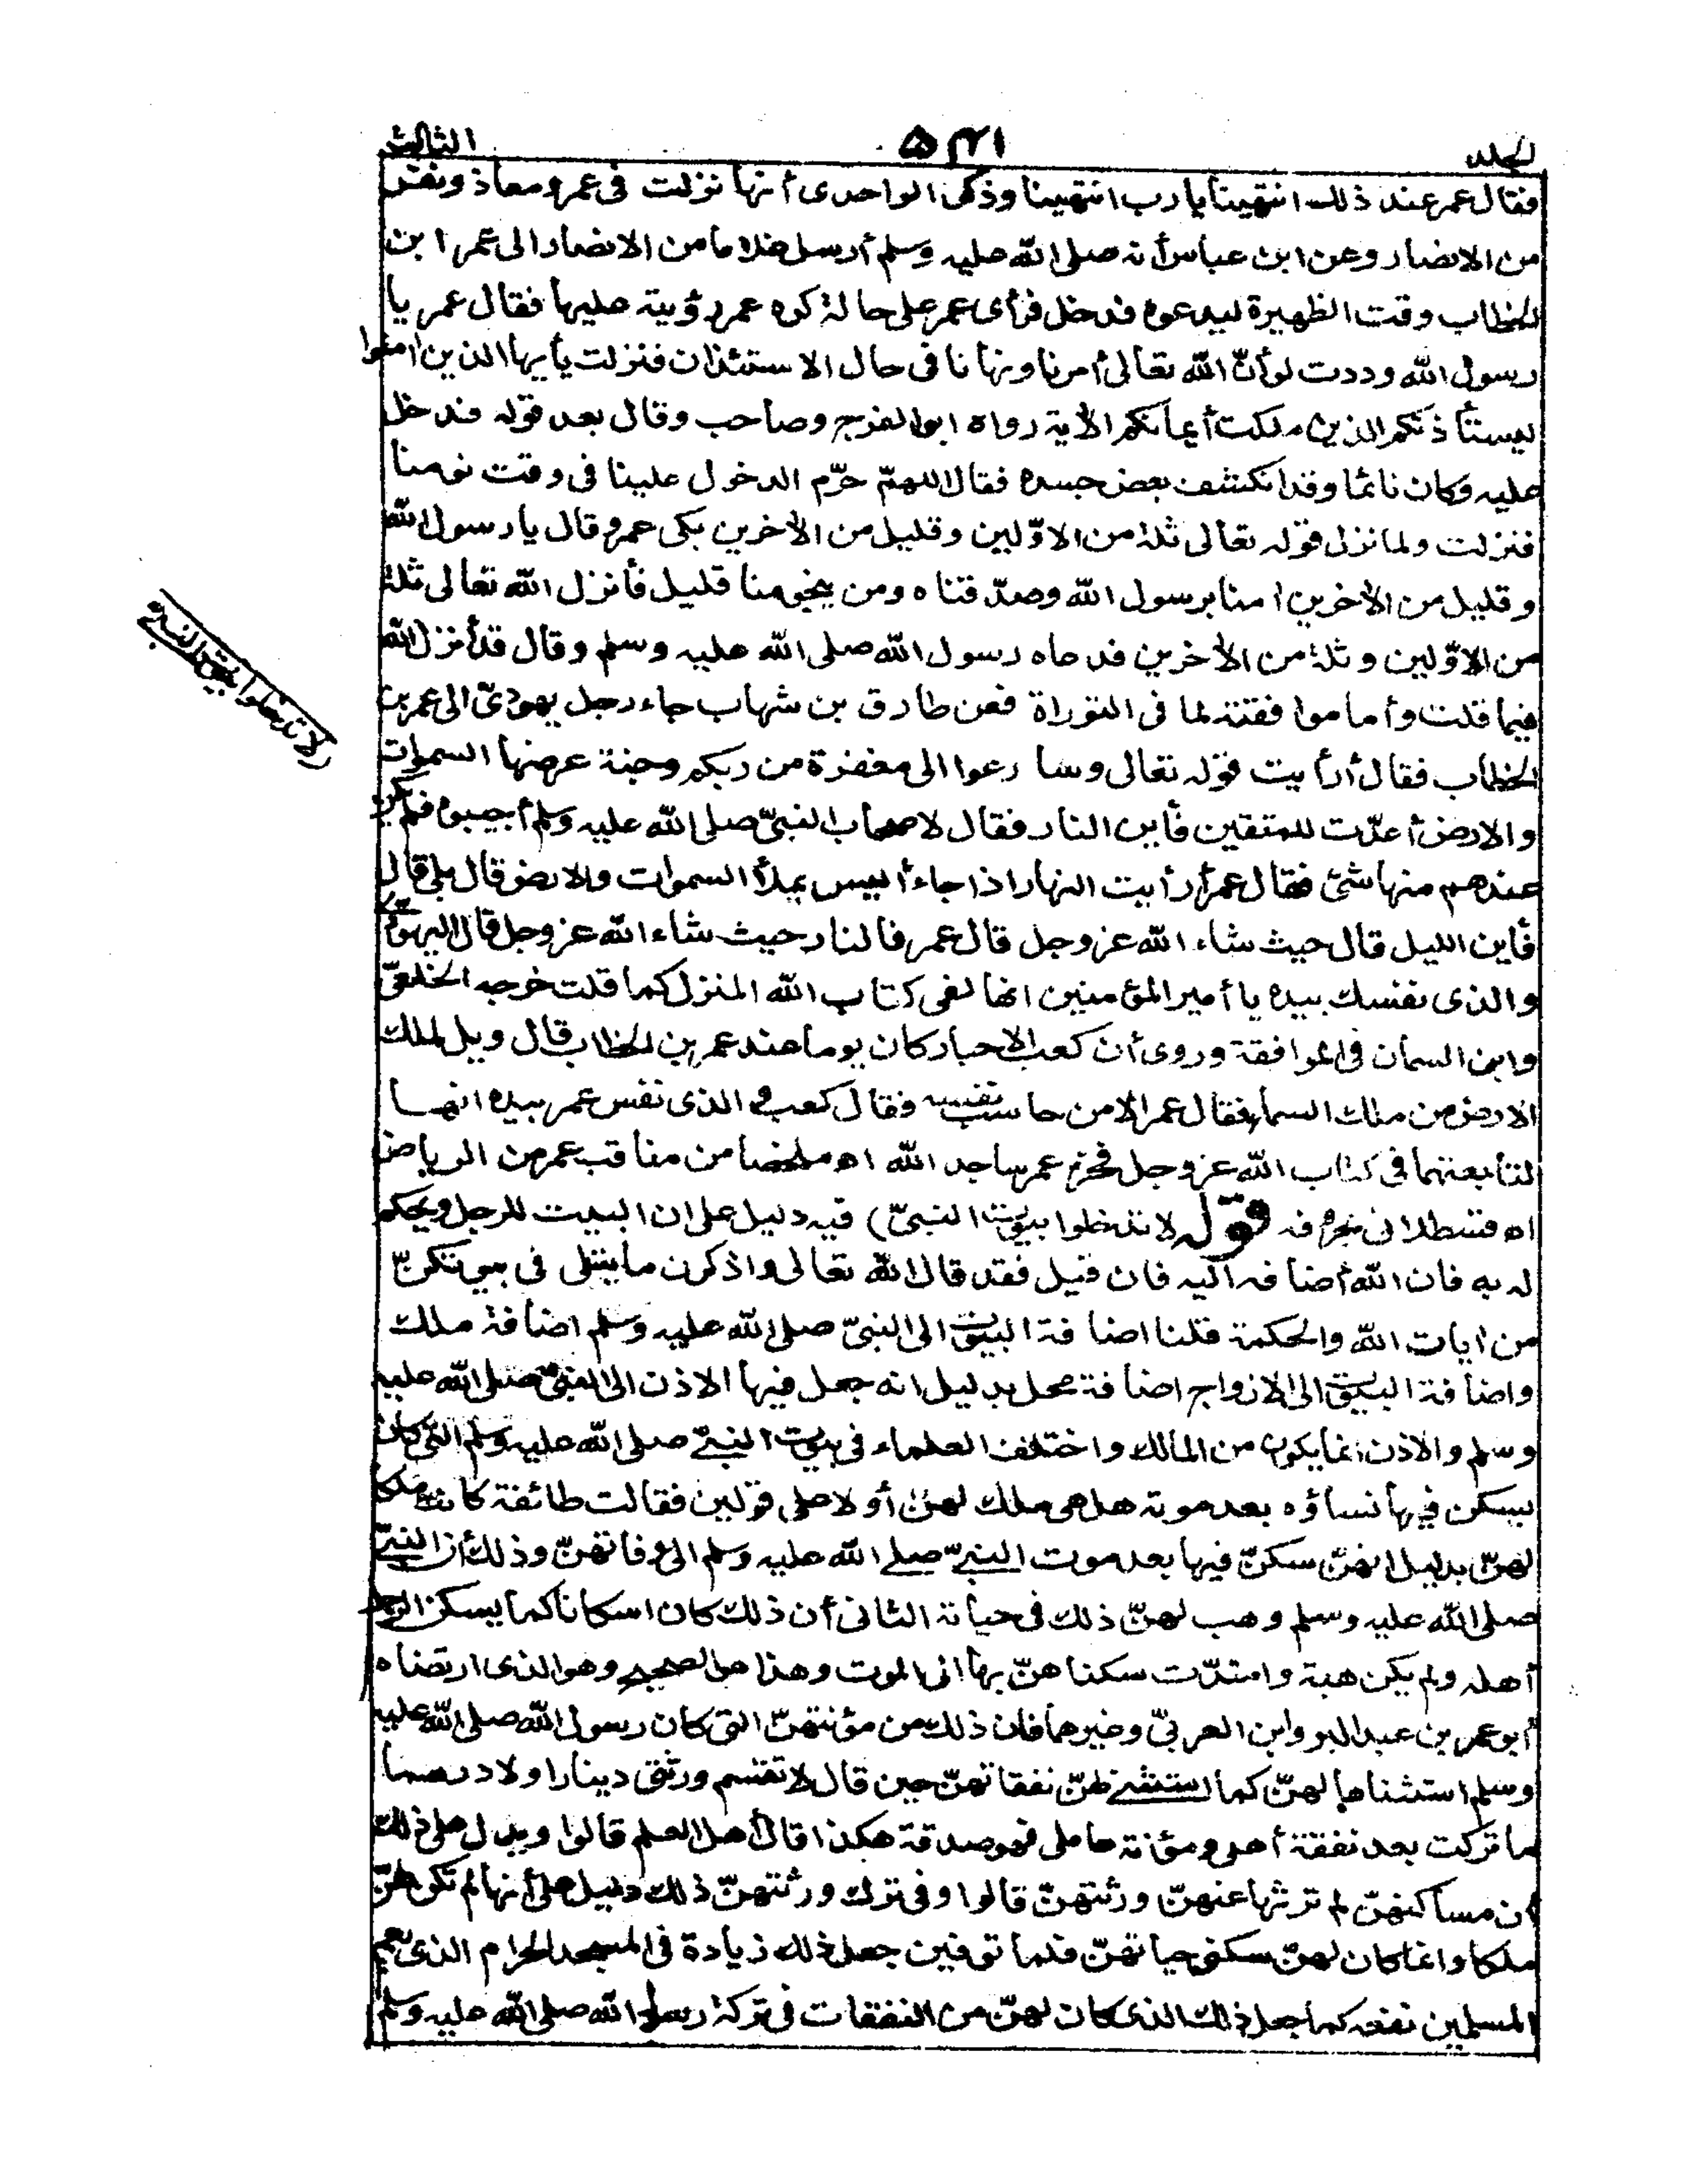 الجلد
٥٤١
الثالث
فقال عمر عند ذلك انتهينا يا رب انتهينا وذكر الواحدى أنها نزلت فى عمر ومعاذ ونفر
من الانصار وعن ابن عباس أنه صلى الله عليه وسلم أرسل غلاما من الانصار الى عمر ابن
الخطاب وقت الظهيرة ليدعوه فدخل فرأى عمر على حالة كره عمر رؤيته عليها فقال عمر يا
رسول الله وددت لو أنّ الله تعالى أمرنا ونهانا فى حال الاستئذان فنزلت يأيها الذين امنوا
ليستأذنكم الذين ملكت أيمانكم الآية رواه ابو الفرج وصاحب وقال بعد قوله فدخل
عليه وكان نائما وقد انكشف بعض جسده فقال اللهمّ حرّم الدخول علينا فى وقت نومنا
فنزلت ولما نزل قوله تعالى ثلة من الاوّلين وقليل من الأخرين بكى عمر وقال يا رسول الله
وقليل من الأخرين امنا برسول الله وصدّقناه ومن ينجو منا قليل فأنزل الله تعالى ثلة
من الاوّلين وثلة من الأخرين فدعاه رسول الله صلى الله عليه وسلم وقال قد أنزل الله
فيما قلت وأما موافقته لما فى التوراة فعن طارق بن شهاب جاء رجل يهودىّ الى عمر بن
الخطاب فقال أرأيت قوله تعالى وسارعوا الى مغفرة من ربكم وجنة عرضها السموات
والارض أعدّت للمتقين فأين النار فقال لاصحاب النبىّ صلى الله عليه وسلم أجيبوه فلم يكن
عندهم منها شئ فقال عمر أرأيت النهار اذا جاء أليس يملأ السموات والارض قال بلى قال
فأين الليل قال حيث شاء الله عز وجل قال عمر فالنار حيث شاء الله عز وجل قال اليهودى
والذى نفسك بيده يا أمير المؤمنين انها لفى كتاب الله المنزل كما قلت خرجه الخلعىّ
وابن السمان فى الموافقة وروى أن كعب الاحبار كان يوما عند عمر بن الخطاب قال ويل لملك
الارض من ملك السماء فقال عمر الا من حاسب نفسه فقال كعب والذى نفس عمر بيده انها
لتابعتها فى كتاب الله عز وجل فخر عمر ساجد الله اه ملخصا من مناقب عمر من الرياض
اه قسطلانى بحروفه قوله لا تدخلوا بيوت النبىّ) فيه دليل على ان البيت للرجل ويحكم
له به فان الله أضافه اليه فان قيل فقد قال الله تعالى واذكرن ما يتلى فى بيوتكنّ
من ايات الله والحكمة قلنا اضافة البيوت الى النبىّ صلى الله عليه وسلم اضافة ملك
واضافة البيوت الى الازواج اضافة محل بدليل انه جعل فيها الاذن الى النبىّ صلى الله عليه
وسلم والاذن انما يكون من المالك واختلف العلماء فى بيوت النبىّ صلى الله عليه وسلم التى كان
يسكن فيها نساؤه بعد موته هل هى ملك لهنّ أو لا على قولين فقالت طائفة كانت ملكا
لهنّ بدليل انهنّ سكنّ فيها بعد موت النبىّ صلى الله عليه وسلم الى وفاتهنّ وذلك أن النبىّ
صلى الله عليه وسلم وهب لهنّ ذلك فى حياته الثانى أن ذلك كان اسكانا كما يسكن الرجل
أهله ولم يكن هبة وامتدّت سكناهنّ بها الى الموت وهذا هو الصحيح وهو الذى ارتضاه
أبو عمر بن عبد البر وابن العربىّ وغيرهما فان ذلك من مؤنتهنّ التى كان رسول الله صلى الله عليه
وسلم استثناها لهنّ كما استثنى لهنّ نفقاتهنّ حين قال لا تقتسم ورثتى دينارا ولا درهما
ما تركت بعد نفقة أهلى ومؤنة عاملى فهو صدقة هكذا قال أهل العلم قالوا ويدل على ذلك
أن مساكنهنّ لم ترثها عنهنّ ورثتهنّ قالوا وفى ترك ورثتهنّ ذلك دليل على أنها لم تكن لهنّ
ملكا وانما كان لهنّ سكنى حياتهنّ فلما توفين جعل ذلك زيادة فى المسجد الحرام الذى يعم
المسلمين نفعه كما جعل ذلك الذى كان لهنّ من النفقات فى تركة رسول الله صلى الله عليه وسلم
لا تدخلوا بيوت النبىّ